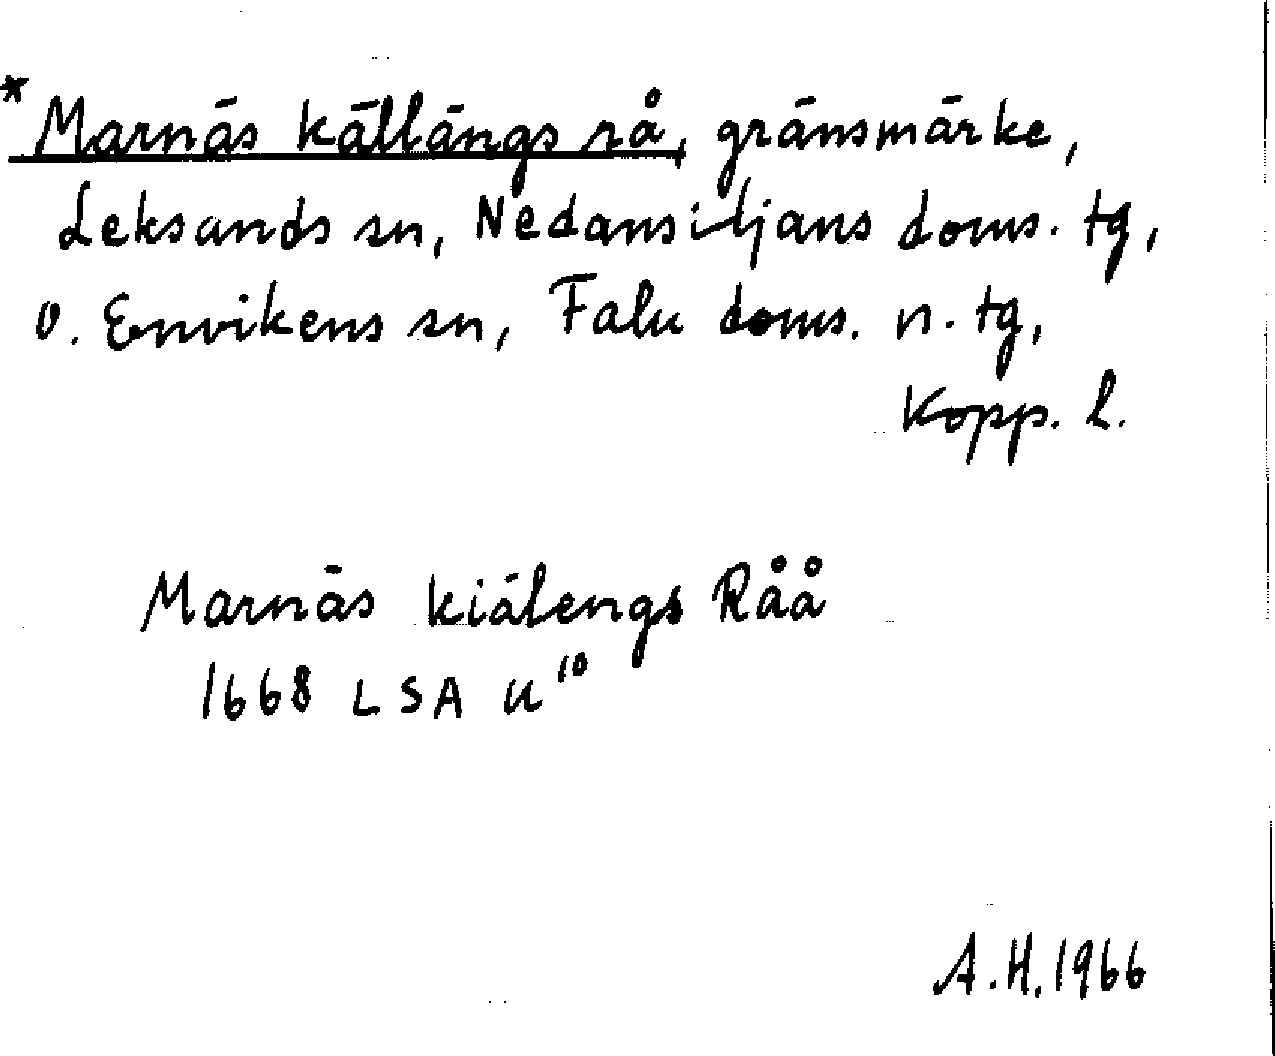 *Marnäs källängs rå, gränsmärke,
Leksands sn, Nedansiljans doms. tg,
o. Envikens sn, Falu doms. n. tg,
Kopp. l.
Marnäs kiälengs Råå
1668 LSA U¹⁰
A.H. 1966